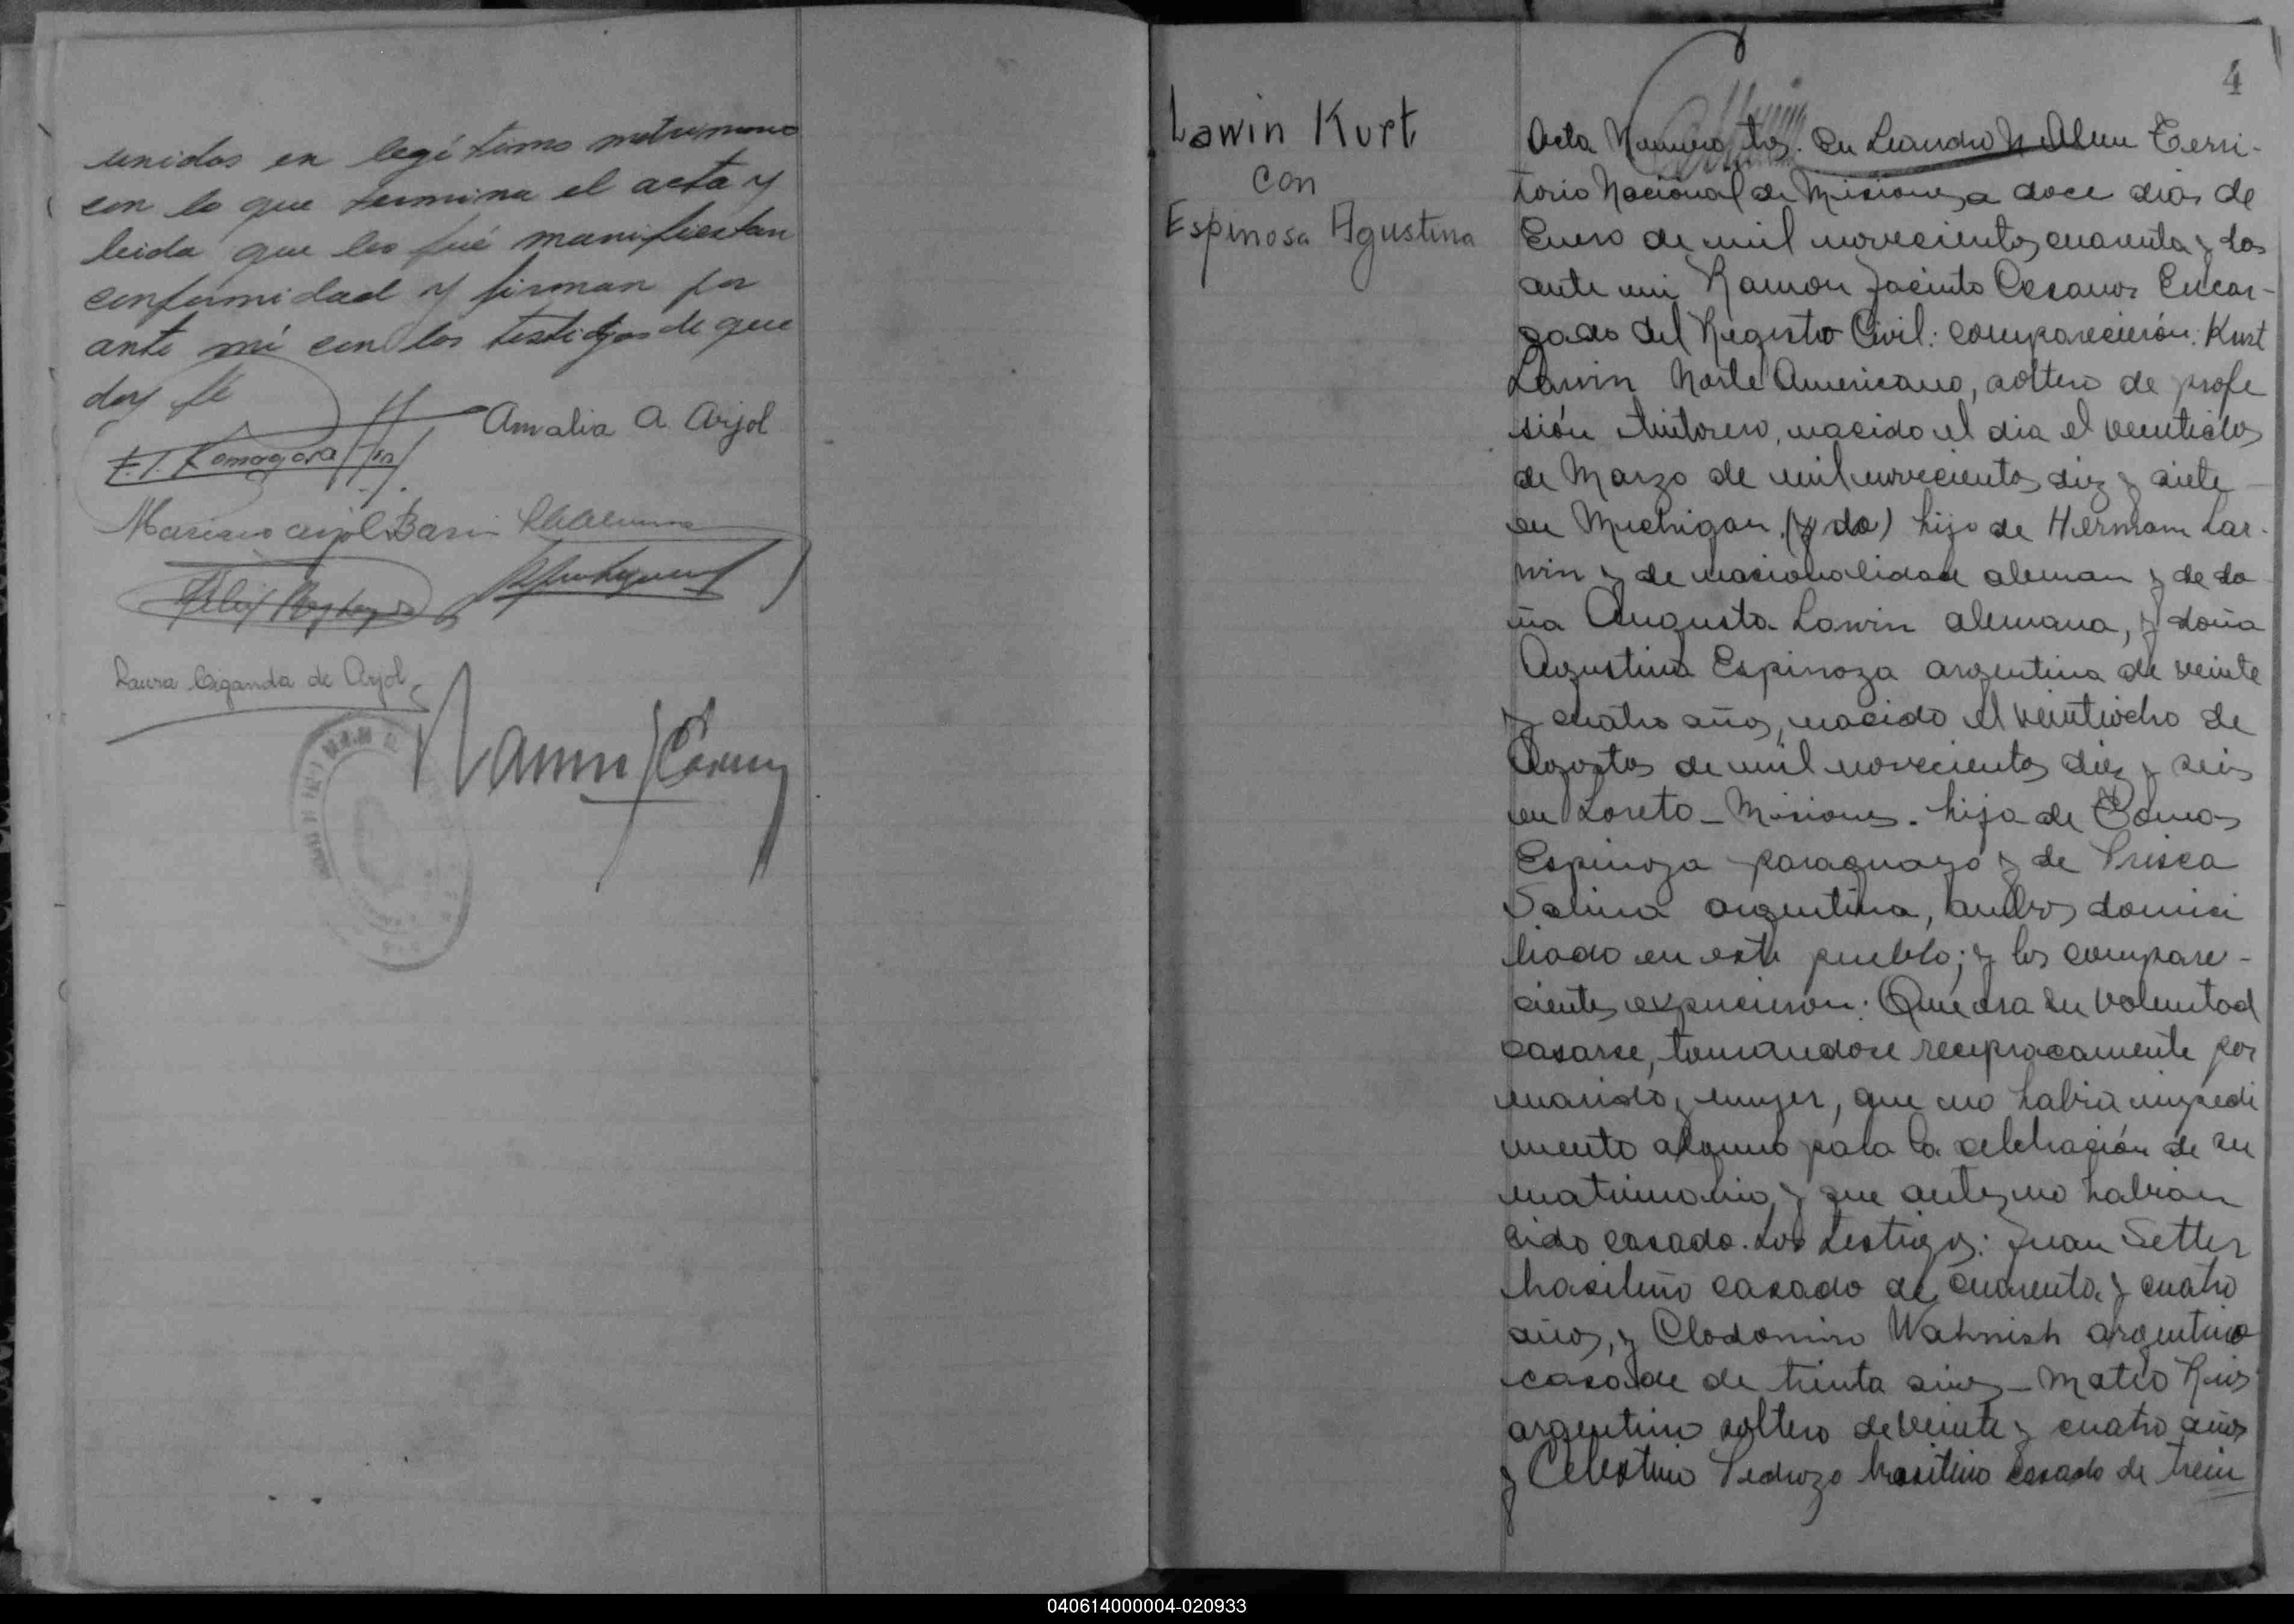 unidos en legítimo matrimonio
con lo que termina el acta y
leida que les fué manifiestan
conformidad y firman por
ante mí con los testigos de que
doy fé
Amalia A. Arjol
Mariano Arjol Bari
Laura Ciganda de Arjol
4
Lawin Kurt
con
Espinosa Agustina
Acta Numero tres. En Leandro N Alem Terri-
torio Nacional de Misiones a doce dias de
Enero de mil novecientos cuarenta y dos
ante mi Ramon Jacinto Cesanor Encar-
gado del Registro Civil: comparecierón: Kurt
Lawin Norte Americano, soltero de profe
sión tintorero, nacido el dia el veintidos
de Marzo de mil novecientos diez y siete
en Michigan (y do) hijo de Hermann Lar-
win y de nacionalidad aleman y de do
ña Augusta Lawin alemana, y doña
Agustina Espinoza argentina de veinte
y cuatro años, nacido el veintiocho de
Agostos de mil novecientos diez y seis
en Loreto - Misiones. hija de Comos
Espinoza paraguayo y de Prisca
Salina argentina, ambos domici
liado en este pueblo; y los compare-
cientes expucieron: Que era su voluntad
casarse, tomandose reciprocamente por
marido y mujer, que no habia impedi
mento alguno para la celebración de su
matrimonio, y que antes no habian
sido casado. Los testigos: Juan Setter
brasileño casado de cuarenta y cuatro
años, y Clodomiro Wahnish argentino
casado de treinta años - Mateo Ruis
argentino soltero de veinte y cuatro años
y Celestino Pedrozo brasilino casado de trein
040614000004-020933